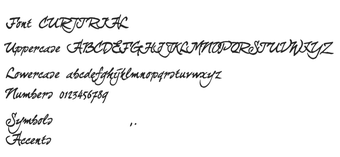 Font CURTIRIAL
Uppercase ABCDEFGHIJKLMNOPQRSTUVWXYZ
Lowercase abcdefghijklmnopqrstuvwxyz
Numbers 0123456789
Symbols , .
Accents